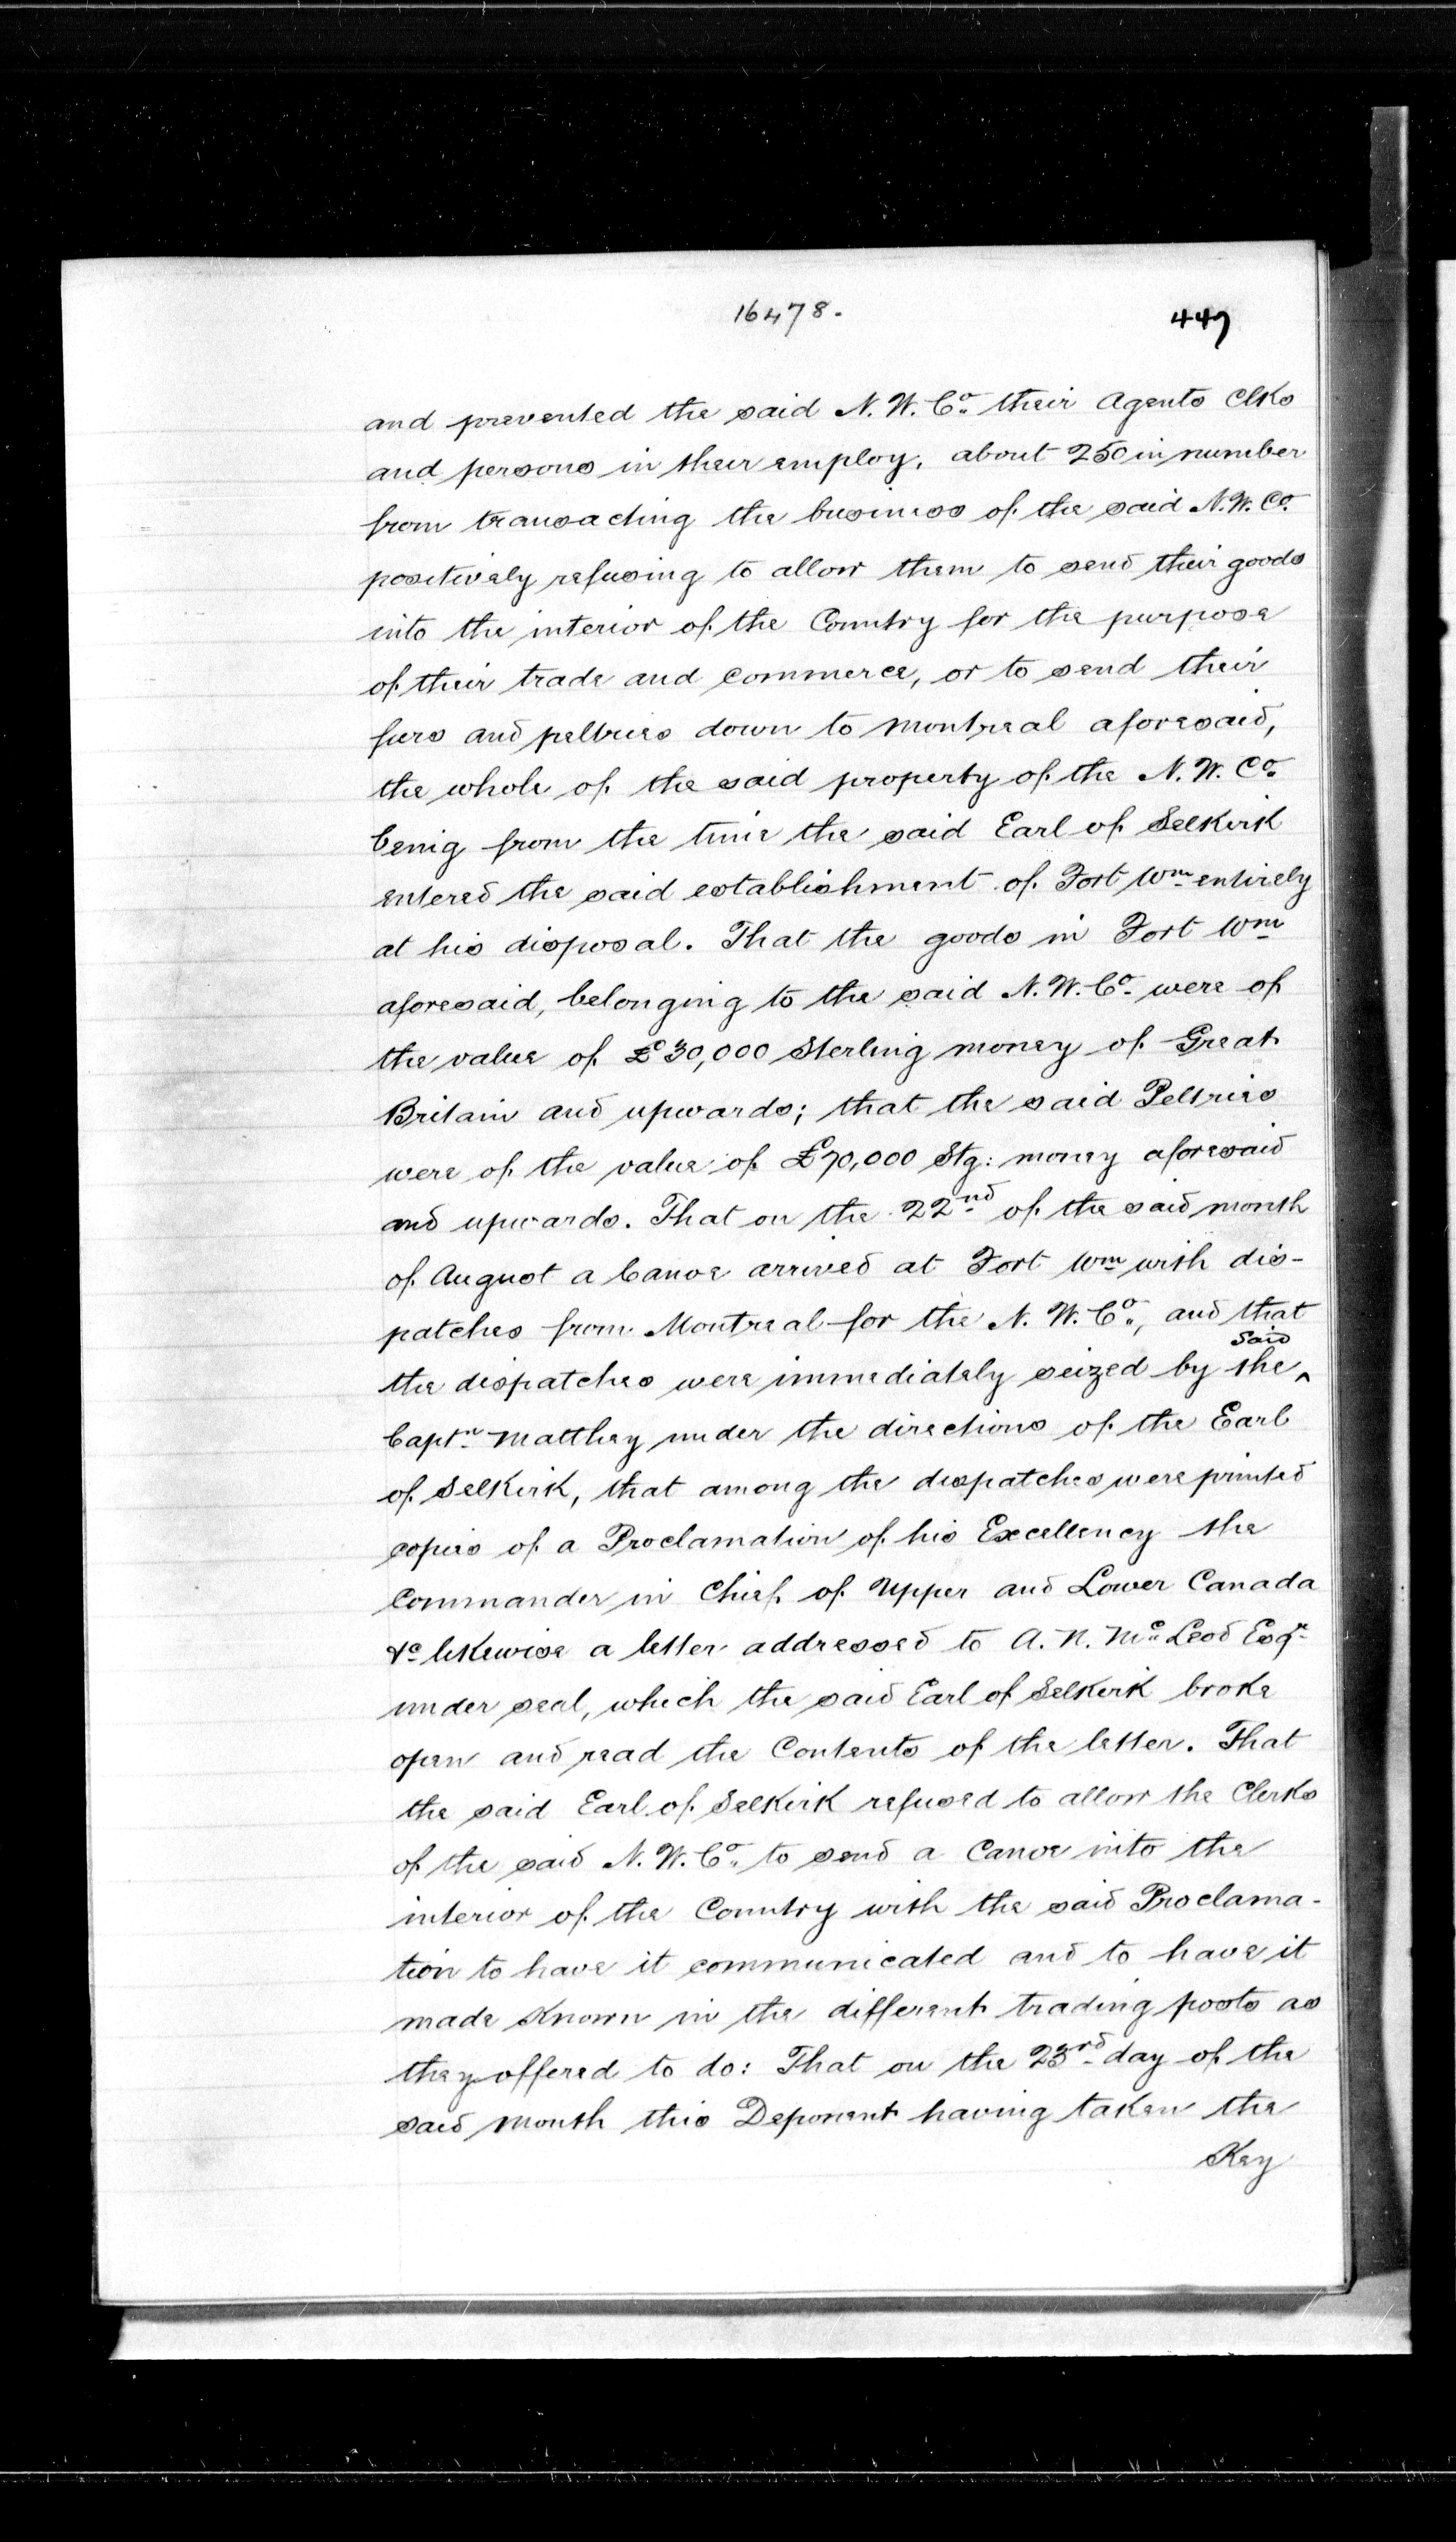 16478.
447
and prevented the said N. W. Co. their Agents Clks
and persons in their employ, about 250 in number
from transacting the business of the said N. W. Co.
positively refusing to allow them to send their goods
into the interior of the Country for the purpose
of their trade and commerce, or to send their
furs and peltries down to Montreal aforesaid,
the whole of the said property of the N. W. Co.
being from the time the said Earl of Selkirk
entered the said establishment of Fort Wm entirely
at his disposal. That the goods in Fort Wm
aforesaid, belonging to the said N. W. Co. were of
the value of £30,000 Sterling money of Great
Britain and upwards; that the said Peltries
were of the value of £70,000 Stg: money aforesaid
and upwards. That on the 22nd of the said month
of August a Canoe arrived at Fort Wm with dis-
patches from Montreal for the N. W. Co., and that
the dispatches were immediately seized by the ^ said
Captn Matthey under the directions of the Earl
of Selkirk, that among the dispatches were printed
copies of a Proclamation of his Excellency the
Commander in Chief of Upper and Lower Canada
&c likewise a letter addressed to A. N. Mc Leod Esqr
under seal, which the said Earl of Selkirk broke
open and read the Contents of the letter. That
the said Earl of Selkirk refused to allow the Clerks
of the said N. W. Co. to send a Canoe into the
interior of the Country with the said Proclama-
tion to have it communicated and to have it
made Known in the different trading posts as
they offered to do: That on the 23rd day of the
said month this Deponent having taken the
Key